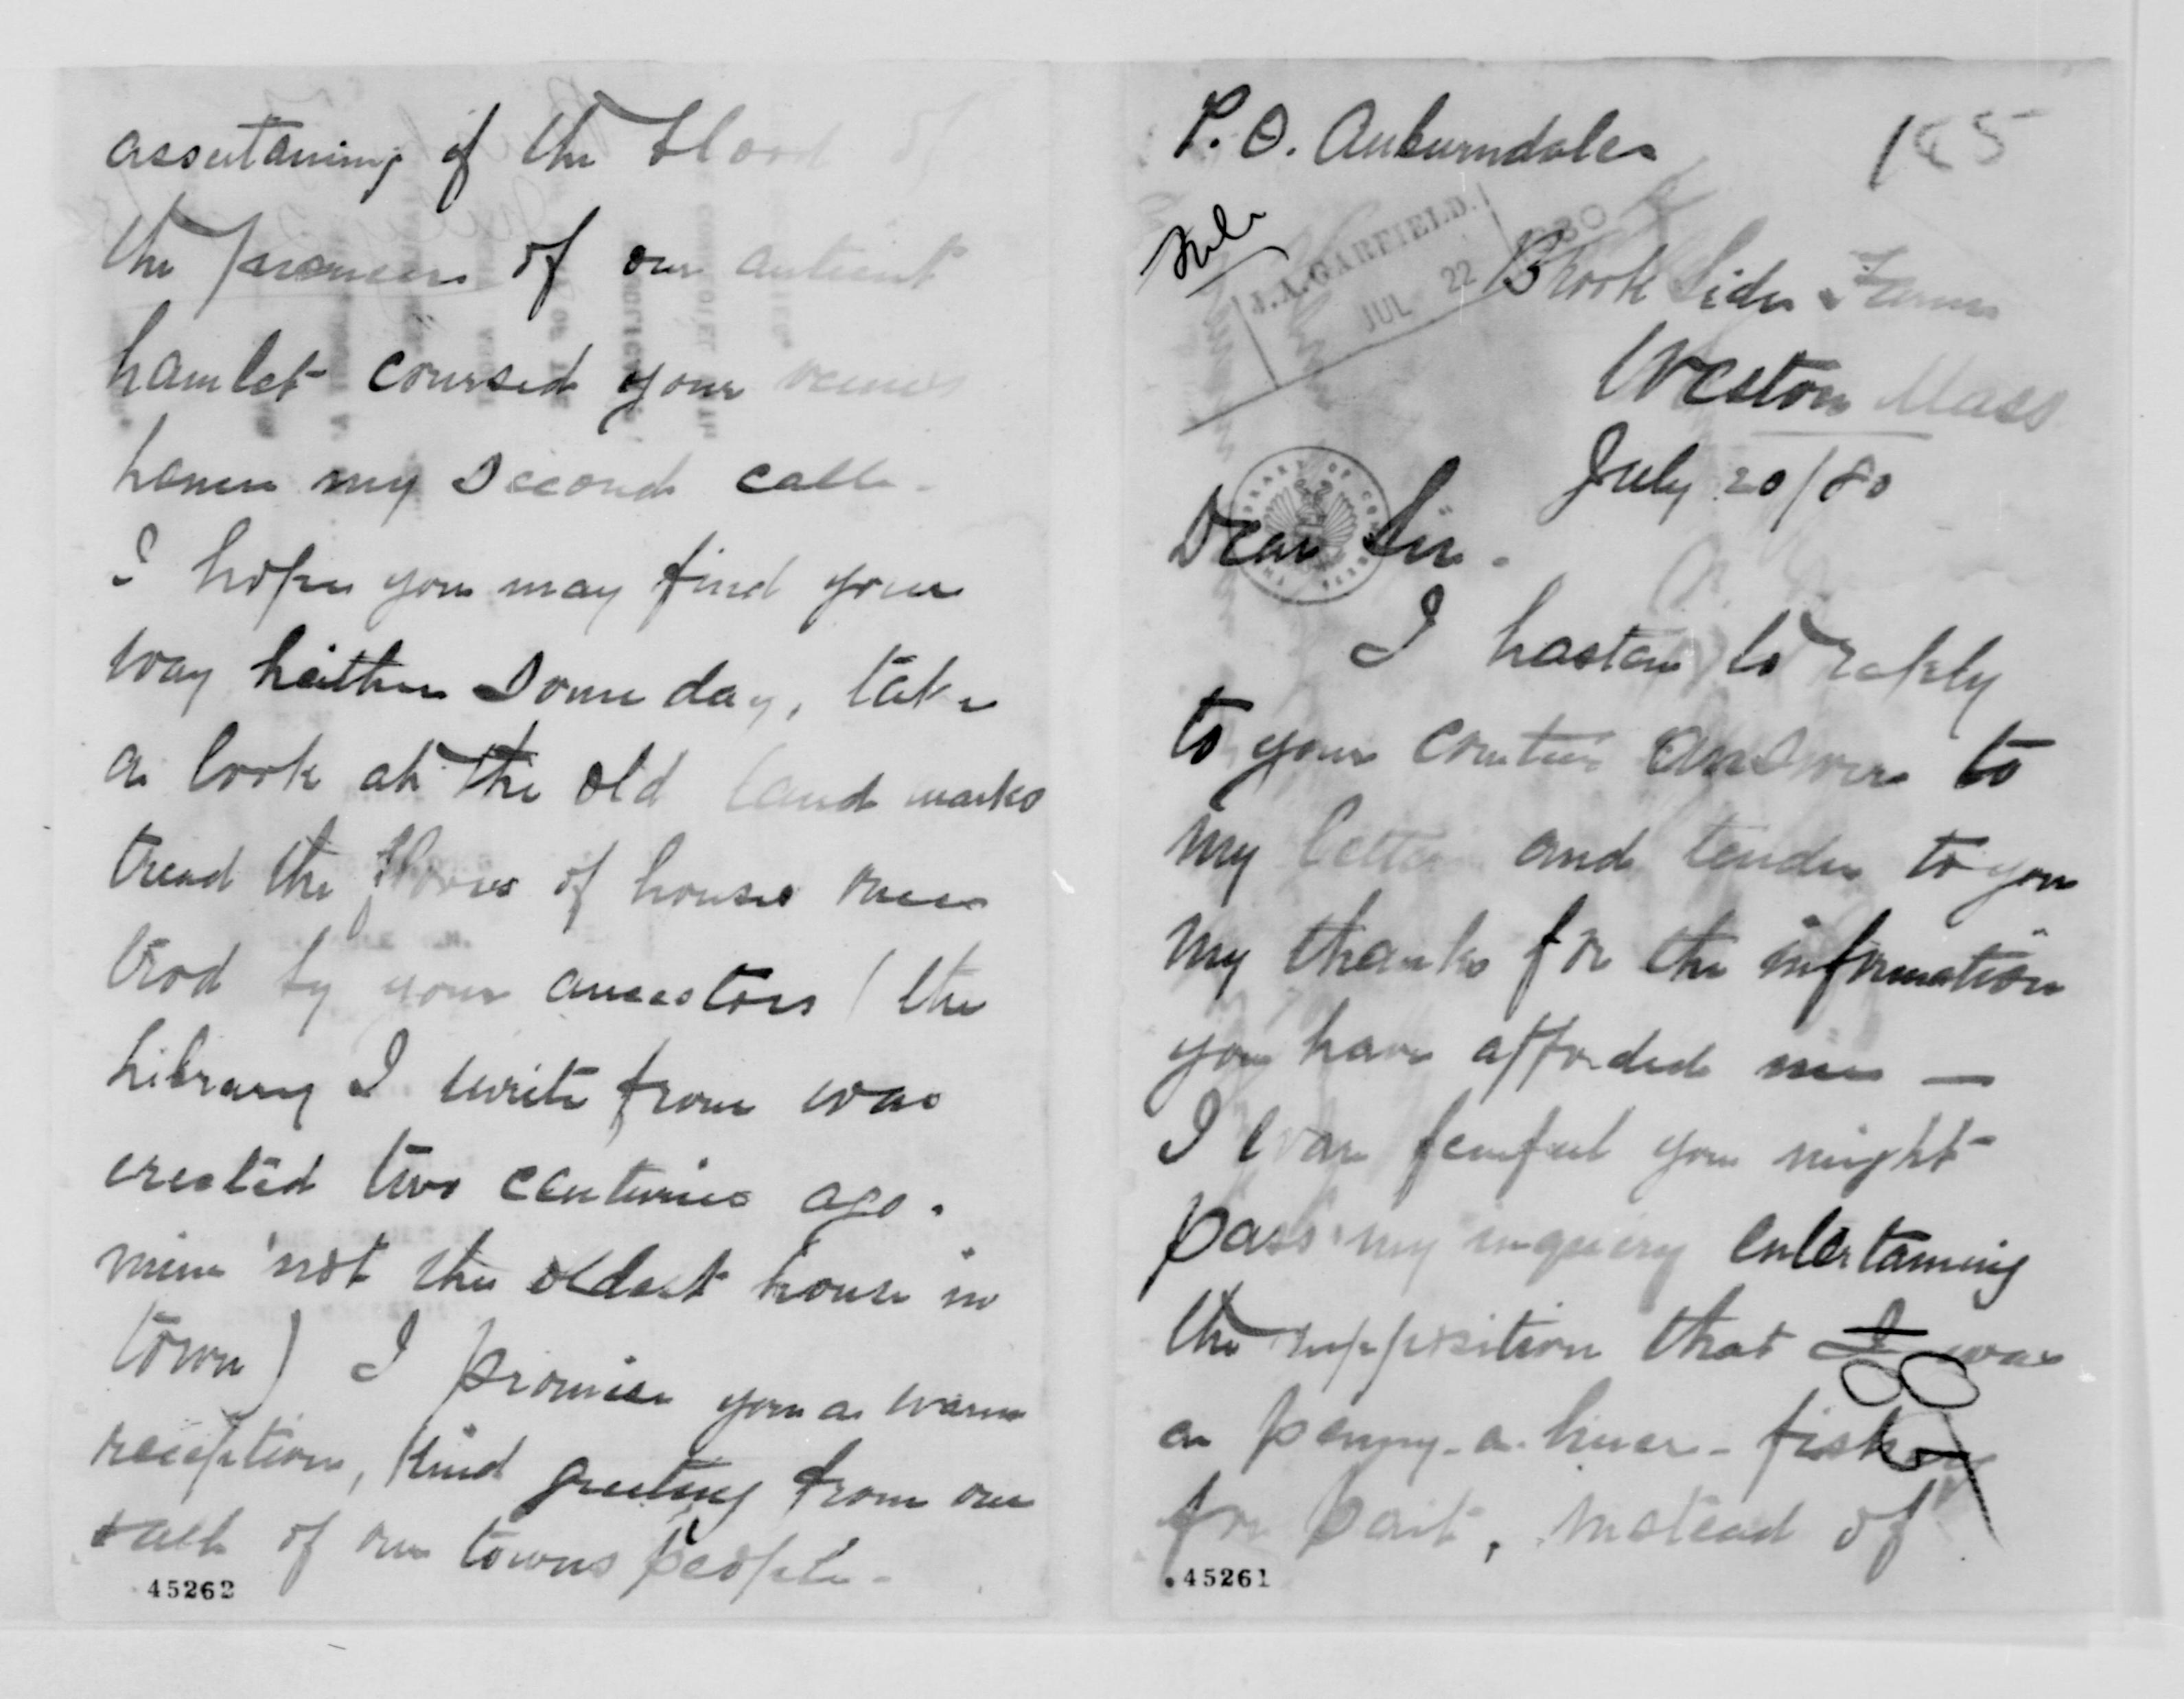 P. O. Auburndale
185
J. A. GARFIELD.
JUL 22 1880
Brook Side Farm
Weston Mass
July 20/80
Dear Sir.
I hasten to reply
to your answer to
my letter and tender to you
my thanks for the information
you have afforded me —
I was fearful you might
pass my inquiery entertaining
the supposition that I was
a penny-a-liner-fishing
for bait, instead of
45261
assertaining if the blood of
the pioneers of our antient
hamlet coursed your veins
hence my second call.
I hope you may find your
way heither some day, take
a look at the old land marks
tread the floors of houses once
trod by your ancestors (the
library I write from was
erected two centuries ago.
mine not the oldest house in
town) I promise you a warm
reception, kind greeting from one
& all of our towns people.
45262